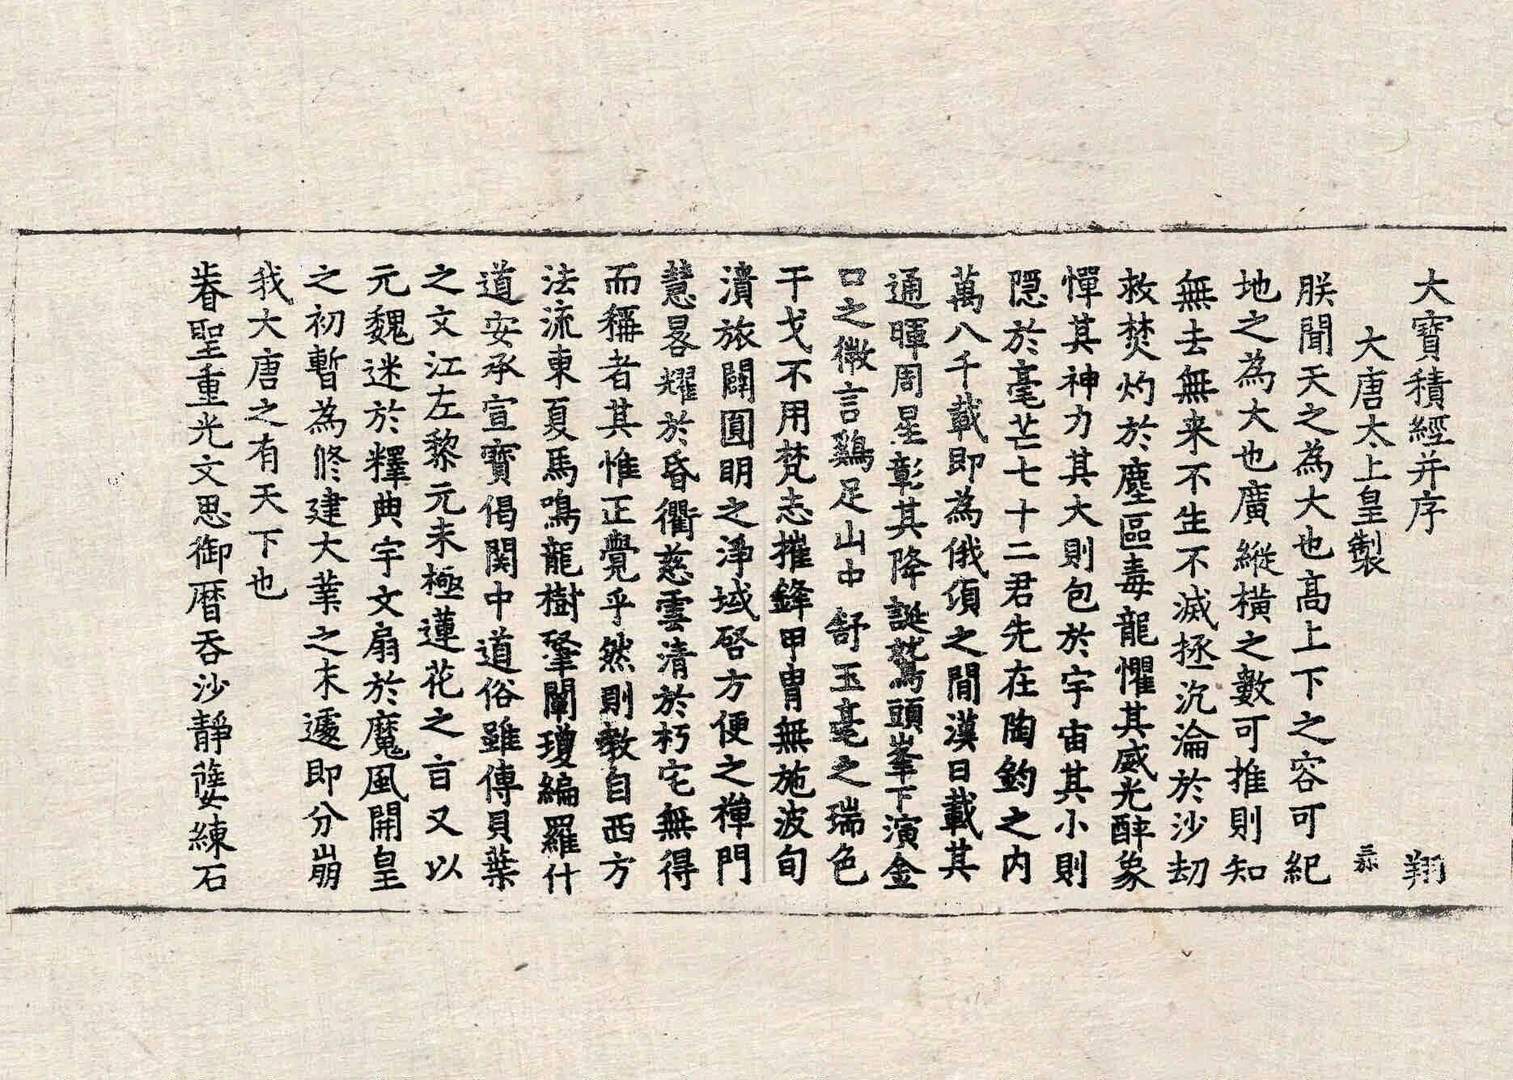 大寶積經并序　翔
大唐太上皇製
朕聞天之為大也高上下之容可紀
地之為大也廣縱橫之數可推則知
無去無来不生不滅拯沉淪於沙劫
救焚灼於塵區毒龍懼其威光醉象
憚其神力其大則包於宇宙其小則
隱於毫芒七十二君先在陶鈞之内
萬八千載即為俄頃之間漢日載其
通暉周星彰其降誕鷲頭峯下演金
口之微言鷄足山中舒玉毫之瑞色
干戈不用梵志摧鋒甲胄無施波旬
潰旅闢圓明之淨域啓方便之禪門
慧晷耀於昏衢慈雲清於朽宅無得
而稱者其惟正覺乎然則教自西方
法流東夏馬鳴龍樹肇闡瓊編羅什
道安承宣寶偈関中道俗雖傳貝葉
之文江左黎元未極蓮花之旨又以
元魏迷於釋典宇文扇於魔風開皇
之初暫為修建大業之末遽即分崩
我大唐之有天下也
眷聖重光文思御曆吞沙靜孽練石